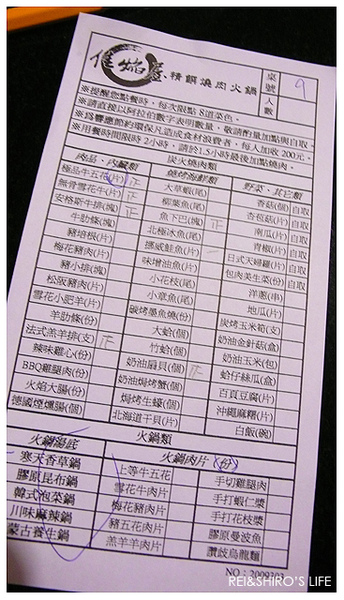 精饌燒肉火鍋
桌號 9
人數
※提醒您點餐時，每次限點 8道菜色。
※請直接以阿拉伯數字表明數量，敬請酌量加點與自取
※為響應節約環保凡造成食材浪費者，每人加收 200元。
※用餐時間限時 2小時，請於1.5小時最後加點燒肉。
炭火燒肉類
肉品、內臟類 燒烤海鮮類 野菜、其它類
極品牛五花(片) 正 大草蝦(尾) 香菇(個) 自取
無骨雪花牛(片) 正 柳葉魚(尾) 杏苞菇(片) 自取
安格斯牛排(塊) 正 魚下巴(塊) 正 南瓜(片) 自取
牛肋條(塊) 北極冰魚(尾) 青椒(片) 自取
豬培根(片) 挪威鮭魚(片) 一 日式天婦羅(片) 自取
梅花豬肉(片) 味增油魚(片) 包肉美生菜(份) 自取
豬小排(塊) 小花枝(尾) 洋蔥(串)
松阪豬肉(片) 小章魚(尾) 地瓜(片)
雪花小肥羊(片) 碳烤墨魚燒(份) 炭烤玉米筍(支)
羊肋條(份) 大蛤(個) 奶油金針菇(盒)
法式羔羊排(支) 正 竹蛤(個) 奶油玉米(包)
辣味雞心(份) 奶油扇貝(個) 正 蛤仔絲瓜(盒)
BBQ雞腿肉(份) 奶油焗烤蟹(個) 百頁豆腐(片)
火焰大腸(份) 焗烤生蠔(個) 沖繩麻糬(片)
德國煙燻腸(個) 北海道干貝(片) 白飯(碗)
火鍋類
火鍋湯底 火鍋肉片 (份)
寒天香草鍋 上等牛五花 手切雞腿肉
膠原昆布鍋 雪花牛肉片 手打蝦仁漿
韓式泡菜鍋 梅花豬肉片 手打花枝漿
川味麻辣鍋 豬五花肉片 膠原曼波魚
蒙古養生鍋 羔羊羊肉片 讚岐烏龍麵
REI&SHIRO'S LIFE